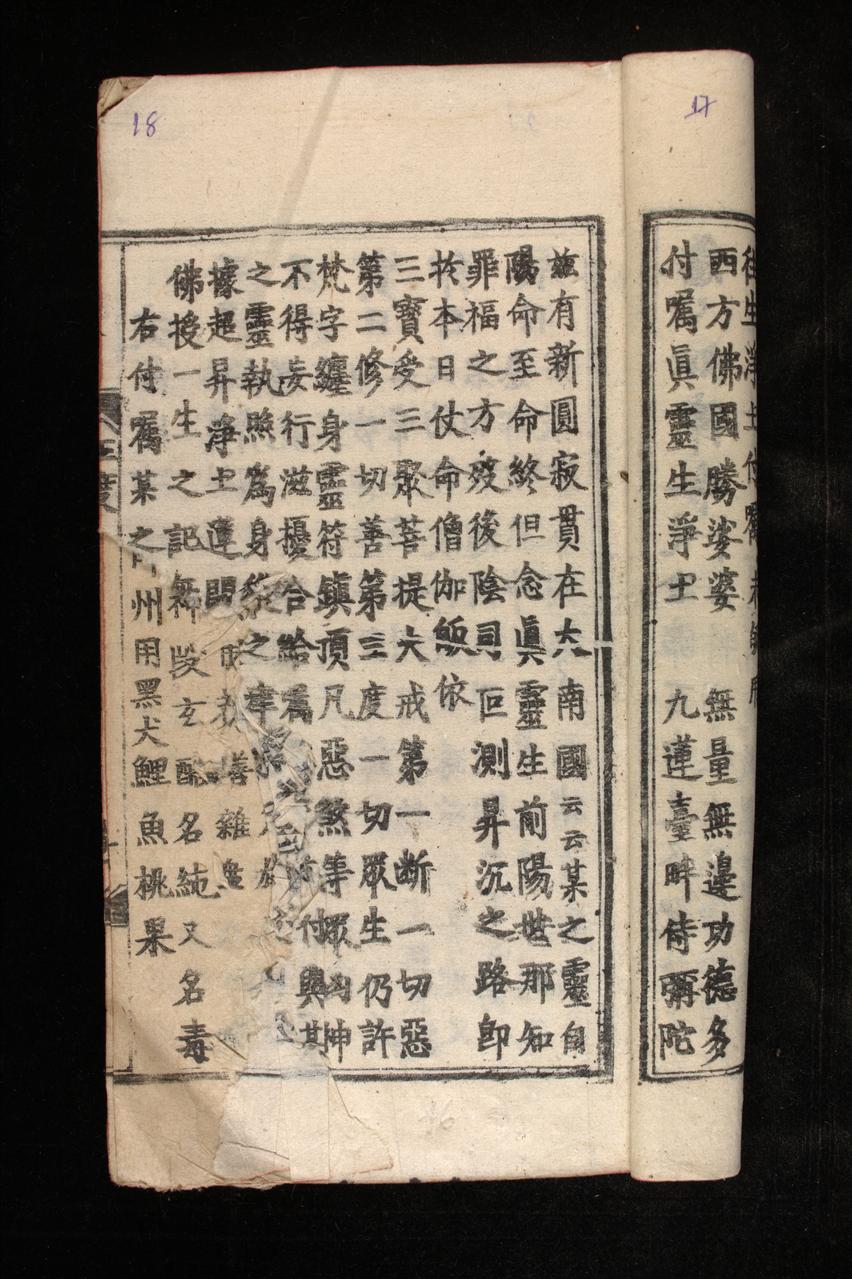 17
往生淨土付囑
西方佛國勝婆婆 無量無邊功德多
付囑眞靈生淨土 九蓮臺畔侍彌陀
18
玆有新圓寂貫在大南國云云某之靈自
陽命至命終但念眞靈生前陽世那知
罪福之方歿後陰司叵測昇沉之路卽
於本日仗命僧伽皈依
三寶受三聚菩提大戒第一断一切惡
第二修一切善第三度一切眾生仍許
梵字纏身靈符鎮頂凡惡煞等眾
不得妄行滋擾合給爲 付與其
之靈執照爲身 之
據超昇淨土蓮 雜
佛授一生之記 名 又名毒
右付囑某之 州用黑犬鯉魚桃果